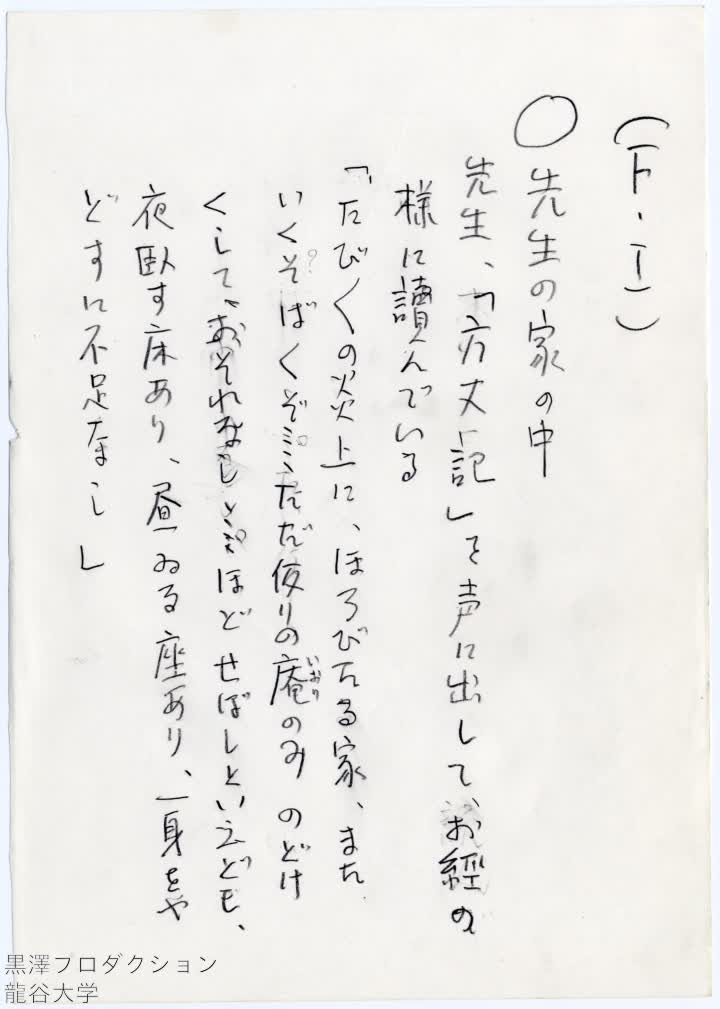 (F・I)
○先生の家の中
先生、「方丈記」を声に出して、お経の
様に讀んでいる
「たびくの炎上に、ほろびたる家、また
いくそばくぞ……ただ仮りの庵のみ のどけ
いおり
くして、おそれなし……ほど せばしといえども、
夜臥す床あり、昼ゐる座あり、一身をや
どすに不足なし」
黒澤プロダクション
龍谷大学